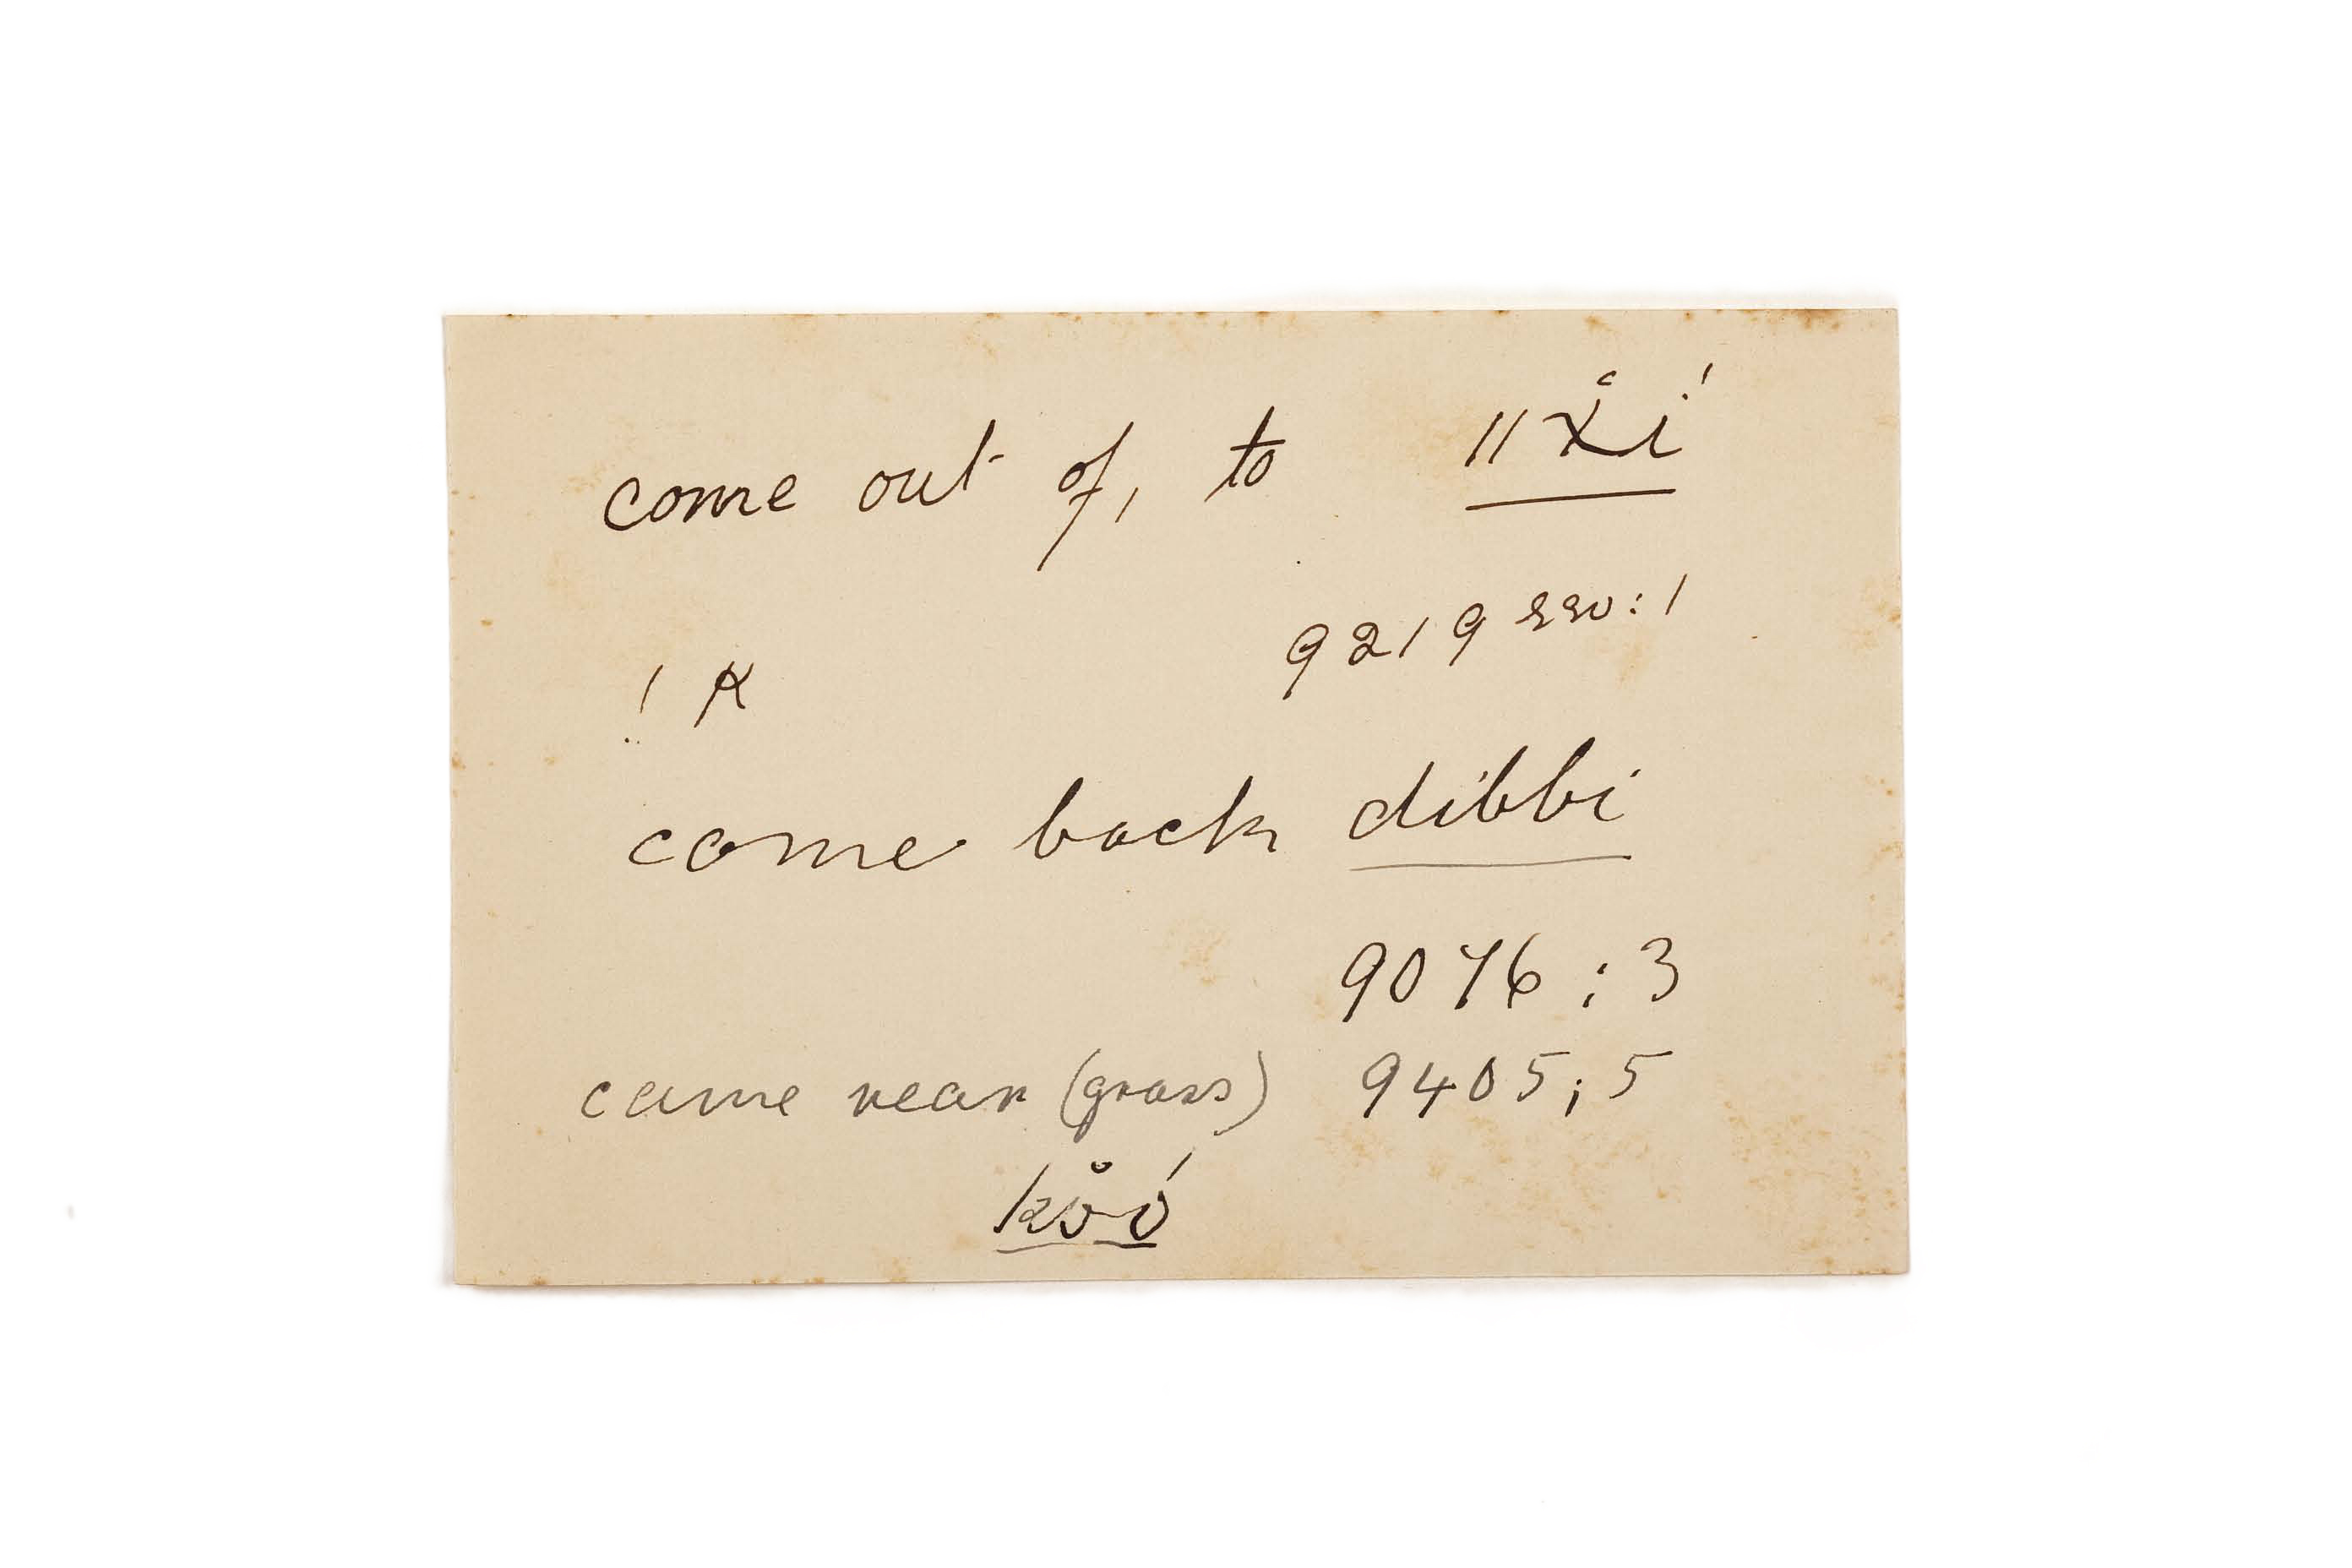 come out of, to ǁχ̊í
9219 rev: 1
! ʞ
come back dibbi
9076 : 3
came near (grass) 9405; 5
kö̊ó